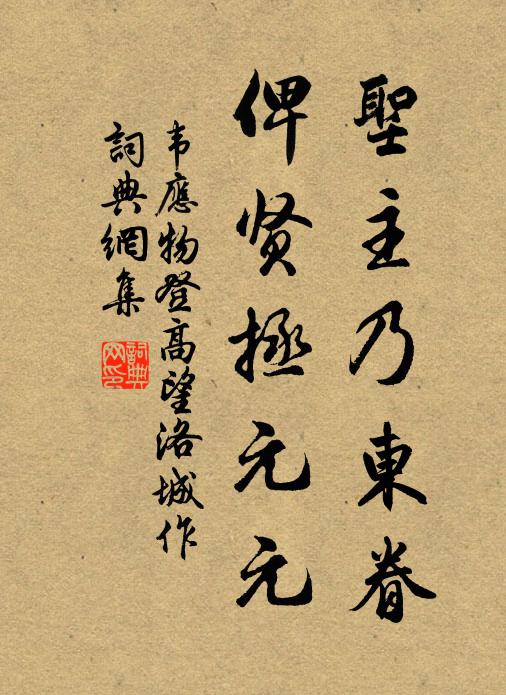 聖主乃東眷
俾贤拯元元
韦應物登高望洛城作
詞典網集
詞典网印